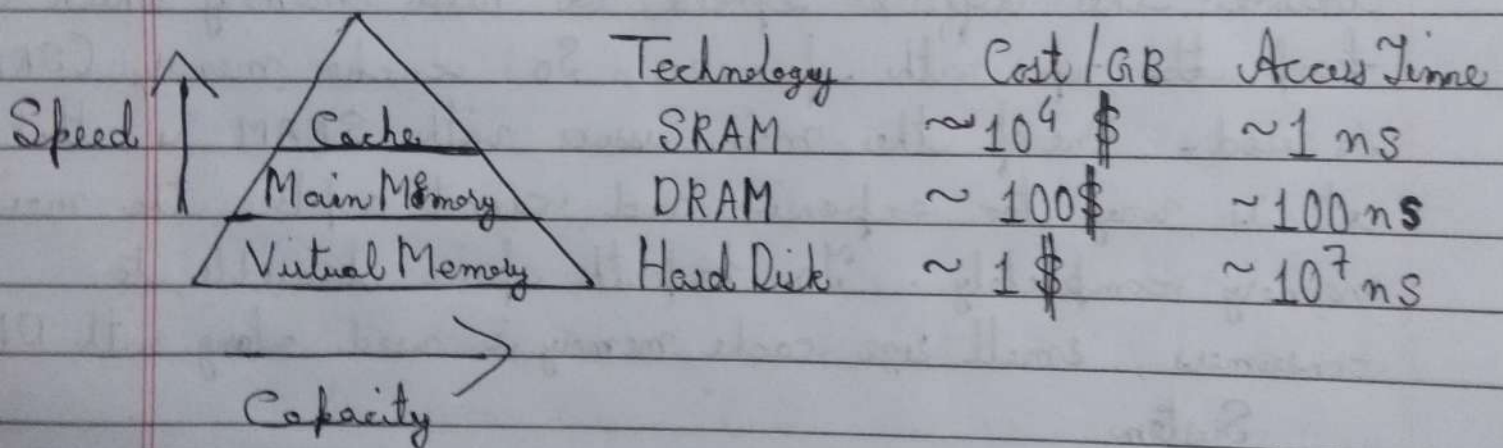 Technology Cost/GB Access Time
Speed Cache SRAM ~10⁴ $ ~1 ns
Main Memory DRAM ~ 100$ ~100 ns
Virtual Memory Hard Disk ~ 1 $ ~10⁷ ns
Capacity